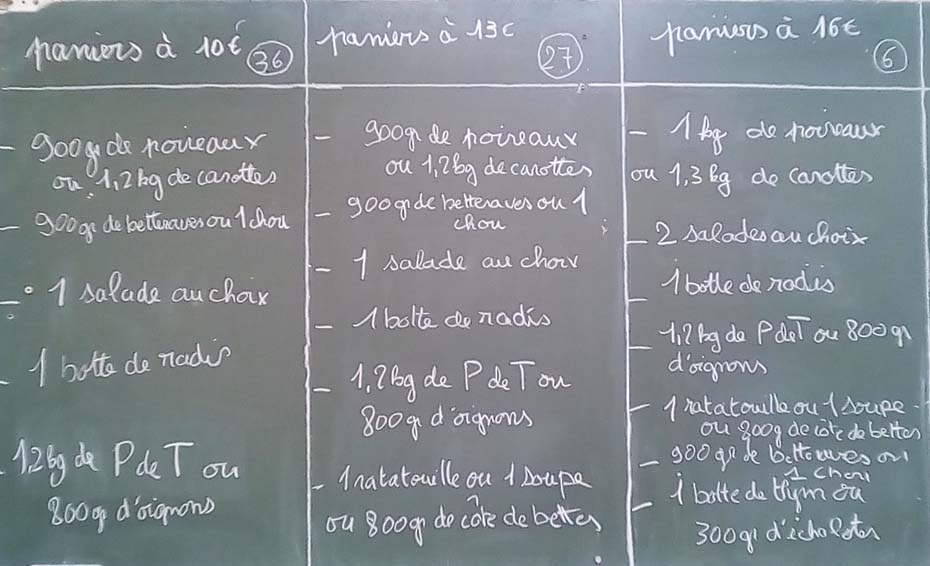 paniers à 10€ 36
- 900gr de poireaux
ou 1,2kg de carottes
- 900gr de betteraves ou 1 chou
- 1 salade au choix
- 1 botte de radis
- 1,2kg de P de T ou
800gr d'oignons
paniers à 13€ 27
- 900gr de poireaux
ou 1,2kg de carottes
- 900gr de betteraves ou 1
chou
- 1 salade au choix
- 1 botte de radis
- 1,2kg de P de T ou
800gr d'oignons
- 1 ratatouille ou 1 soupe
ou 800gr de côte de bettes
paniers à 16€ 6
- 1 kg de poireaux
ou 1,3 kg de carottes
- 2 salades au choix
- 1 botte de radis
- 1,2kg de P de T ou 800gr
d'oignons
- 1 ratatouille ou 1 soupe
ou 800g de côte de bettes
- 900 gr de betteraves ou
1 chou
- 1 botte de thym ou
300gr d'échalotes